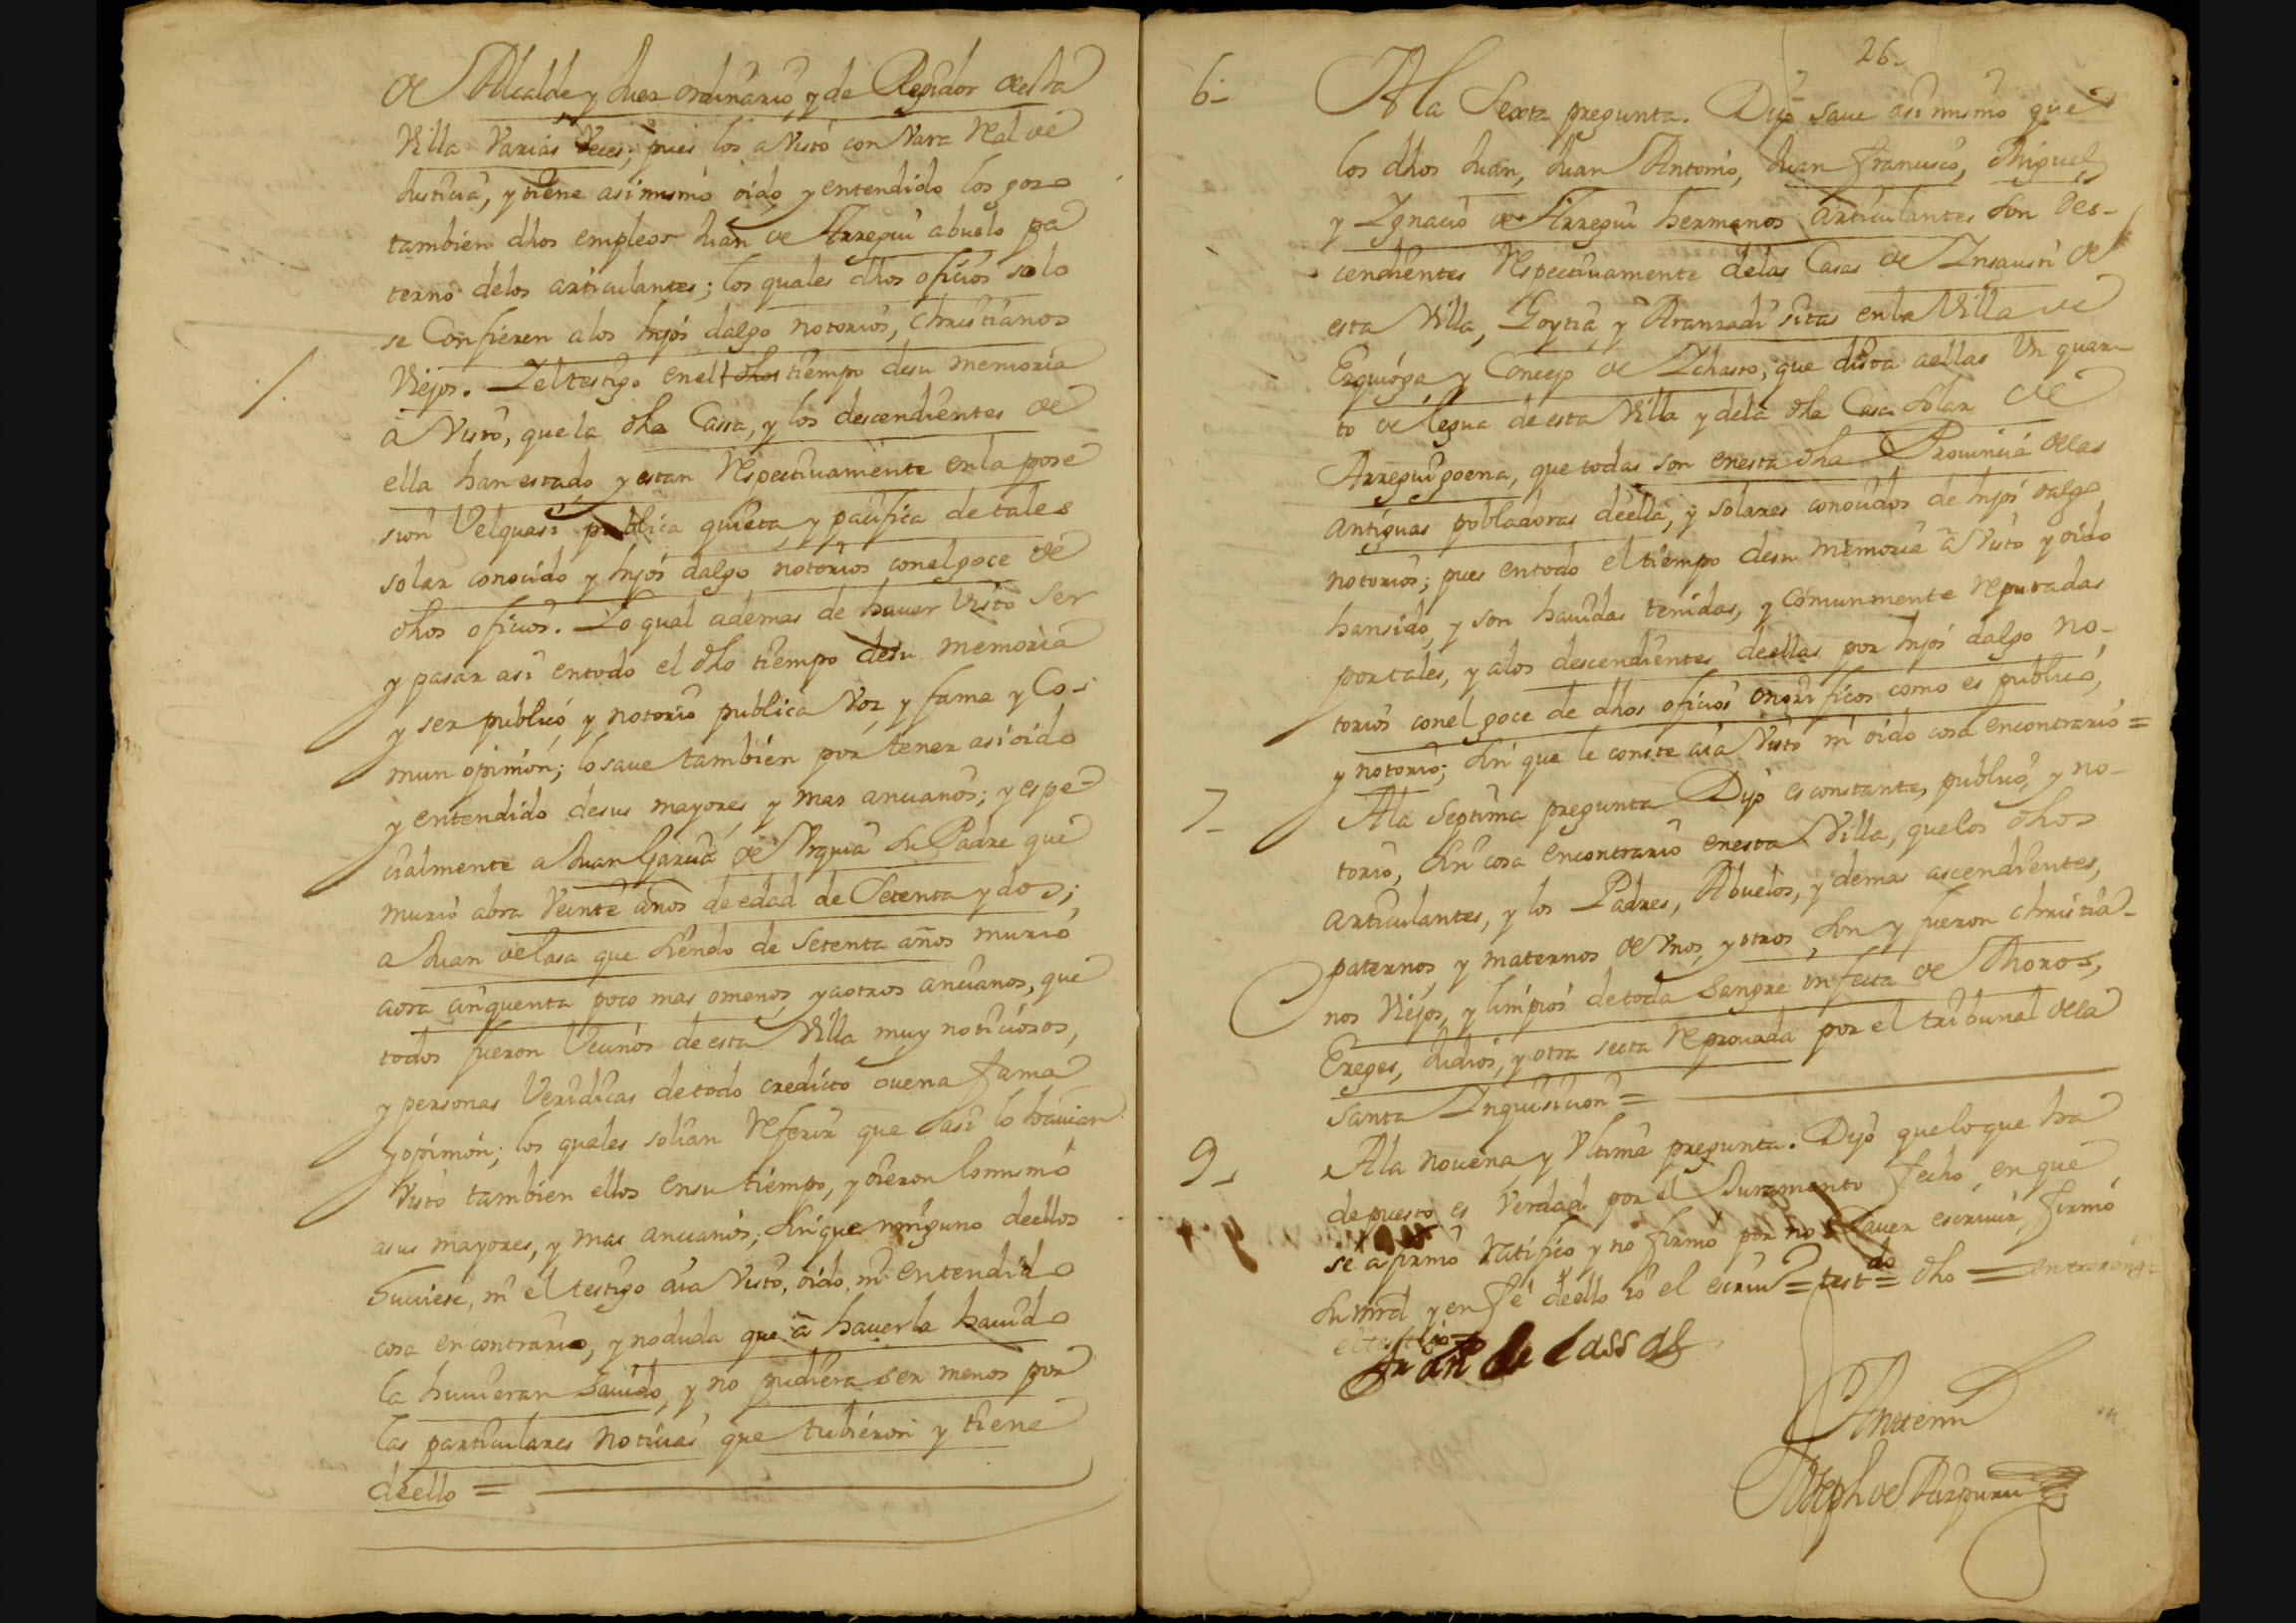 de Alcalde, y Juez ordinario, y de Regidor desta
Villa Varias Veces; pues los a visto con Vara Real de
Justicia, y tiene asimismo oido, y entendido los gozo
tambien dhos empleos Juan de Arregui abuelo pa
terno delos articulantes; los quales dhos oficios solo
se Confieren alos hijos dalgo notorios, christianos
Viejos. Y el testigo en el dhos tiempo desu memoria
a visto, que la dha Cassa, y los descendientes de
ella han estado, y estan Respectivamente en la pose
sion Velquasi publica quieta, y pacifica de tales
solar conocido y hijos dalgo notorios con el goce de
dhos oficios. Lo qual ademas de hauer visto ser
y pasar asi en todo el dho tiempo desu memoria
y ser publico, y notorio publica voz, y fama y Co-
mun opinion; lo saue tambien por tener asi oido
y entendido desus mayores, y mas ancianos; y espe-
cialmente a Juan Garcia de Vrquia su Padre que
murio abra Veinte años de edad de Setenta y dos;
a Juan de lasa que siendo de setenta años murio
aora cinquenta poco mas omenos, y aotros ancianos, que
todos fueron Vecinos de esta Villa muy noticiosos,
y personas Veridicas de todo credito buena fama
y opinion; los quales solian Referir que asi lo hauian
visto tambien ellos ensu tiempo, y oieron lo mismo
asus mayores, y mas ancianos; sin que ninguno deellos
Supiese, ni el testigo aia visto, oido, ni entendido
cosa en contrario, y no duda que a hauerla hauido
la huuieran Sauido, y no pudiera ser menos por
las particulares noticias que tubieron y tiene
deello =
26.
6- A la Sexta pregunta. Dijo saue asi mismo que
los dhos Juan, Juan Antonio, Juan Francisco, Miguel,
y Ignacio de Arregui hermanos articulantes son des-
cendientes Respectivamente delas Casas de Insausti de
esta Villa, Goytia, y Aranzadi sitas en la Villa de
Ezquioga, y Concejo de Ichasso, que dista aellas Un quar-
to de legua de esta Villa y dela dha Casa Solar de
Arreguigoena, que todas son enesta dha Provincia delas
antiguas pobladoras deella, y solares conocidos de hijos dalgo
notorios; pues en todo el tiempo desu memoria a visto y oido
han sido, y son hauidas tenidas, y comunmente Reputadas
por tales, y alos descendientes deellas por hijos dalgo no-
torios con el goce de dhos oficios onorificos como es publico,
y notorio; sin que le conste aia Visto ni oido cosa en contrario =
7- A la Septima pregunta Dijo es constante, publico, y no-
torio, sin cosa encontrario enesta Villa, quelos dhos
articulantes, y los Padres, Abuelos, y demas ascendientes,
paternos, y maternos de Vnos, y otros, son y fueron christia-
nos Viejos, y limpios de toda Sangre infecta de Moros,
Ereges, Judios, y otra secta Reprouada por el tribunal dela
Santa Inquisicion =
9- A la nouena, y Vltima pregunta. Dijo que lo que ha
depuesto es Verdad por el Juramento fecho, en que
se afirmo Ratifico y no firmo por no Sauer escriuir, firmo
Su mrd y en fe deello yo el escriu = testdo = dho = entrereng =
el testigo =
Juan de Lassa
Ante mi
Joseph de Aizpuru